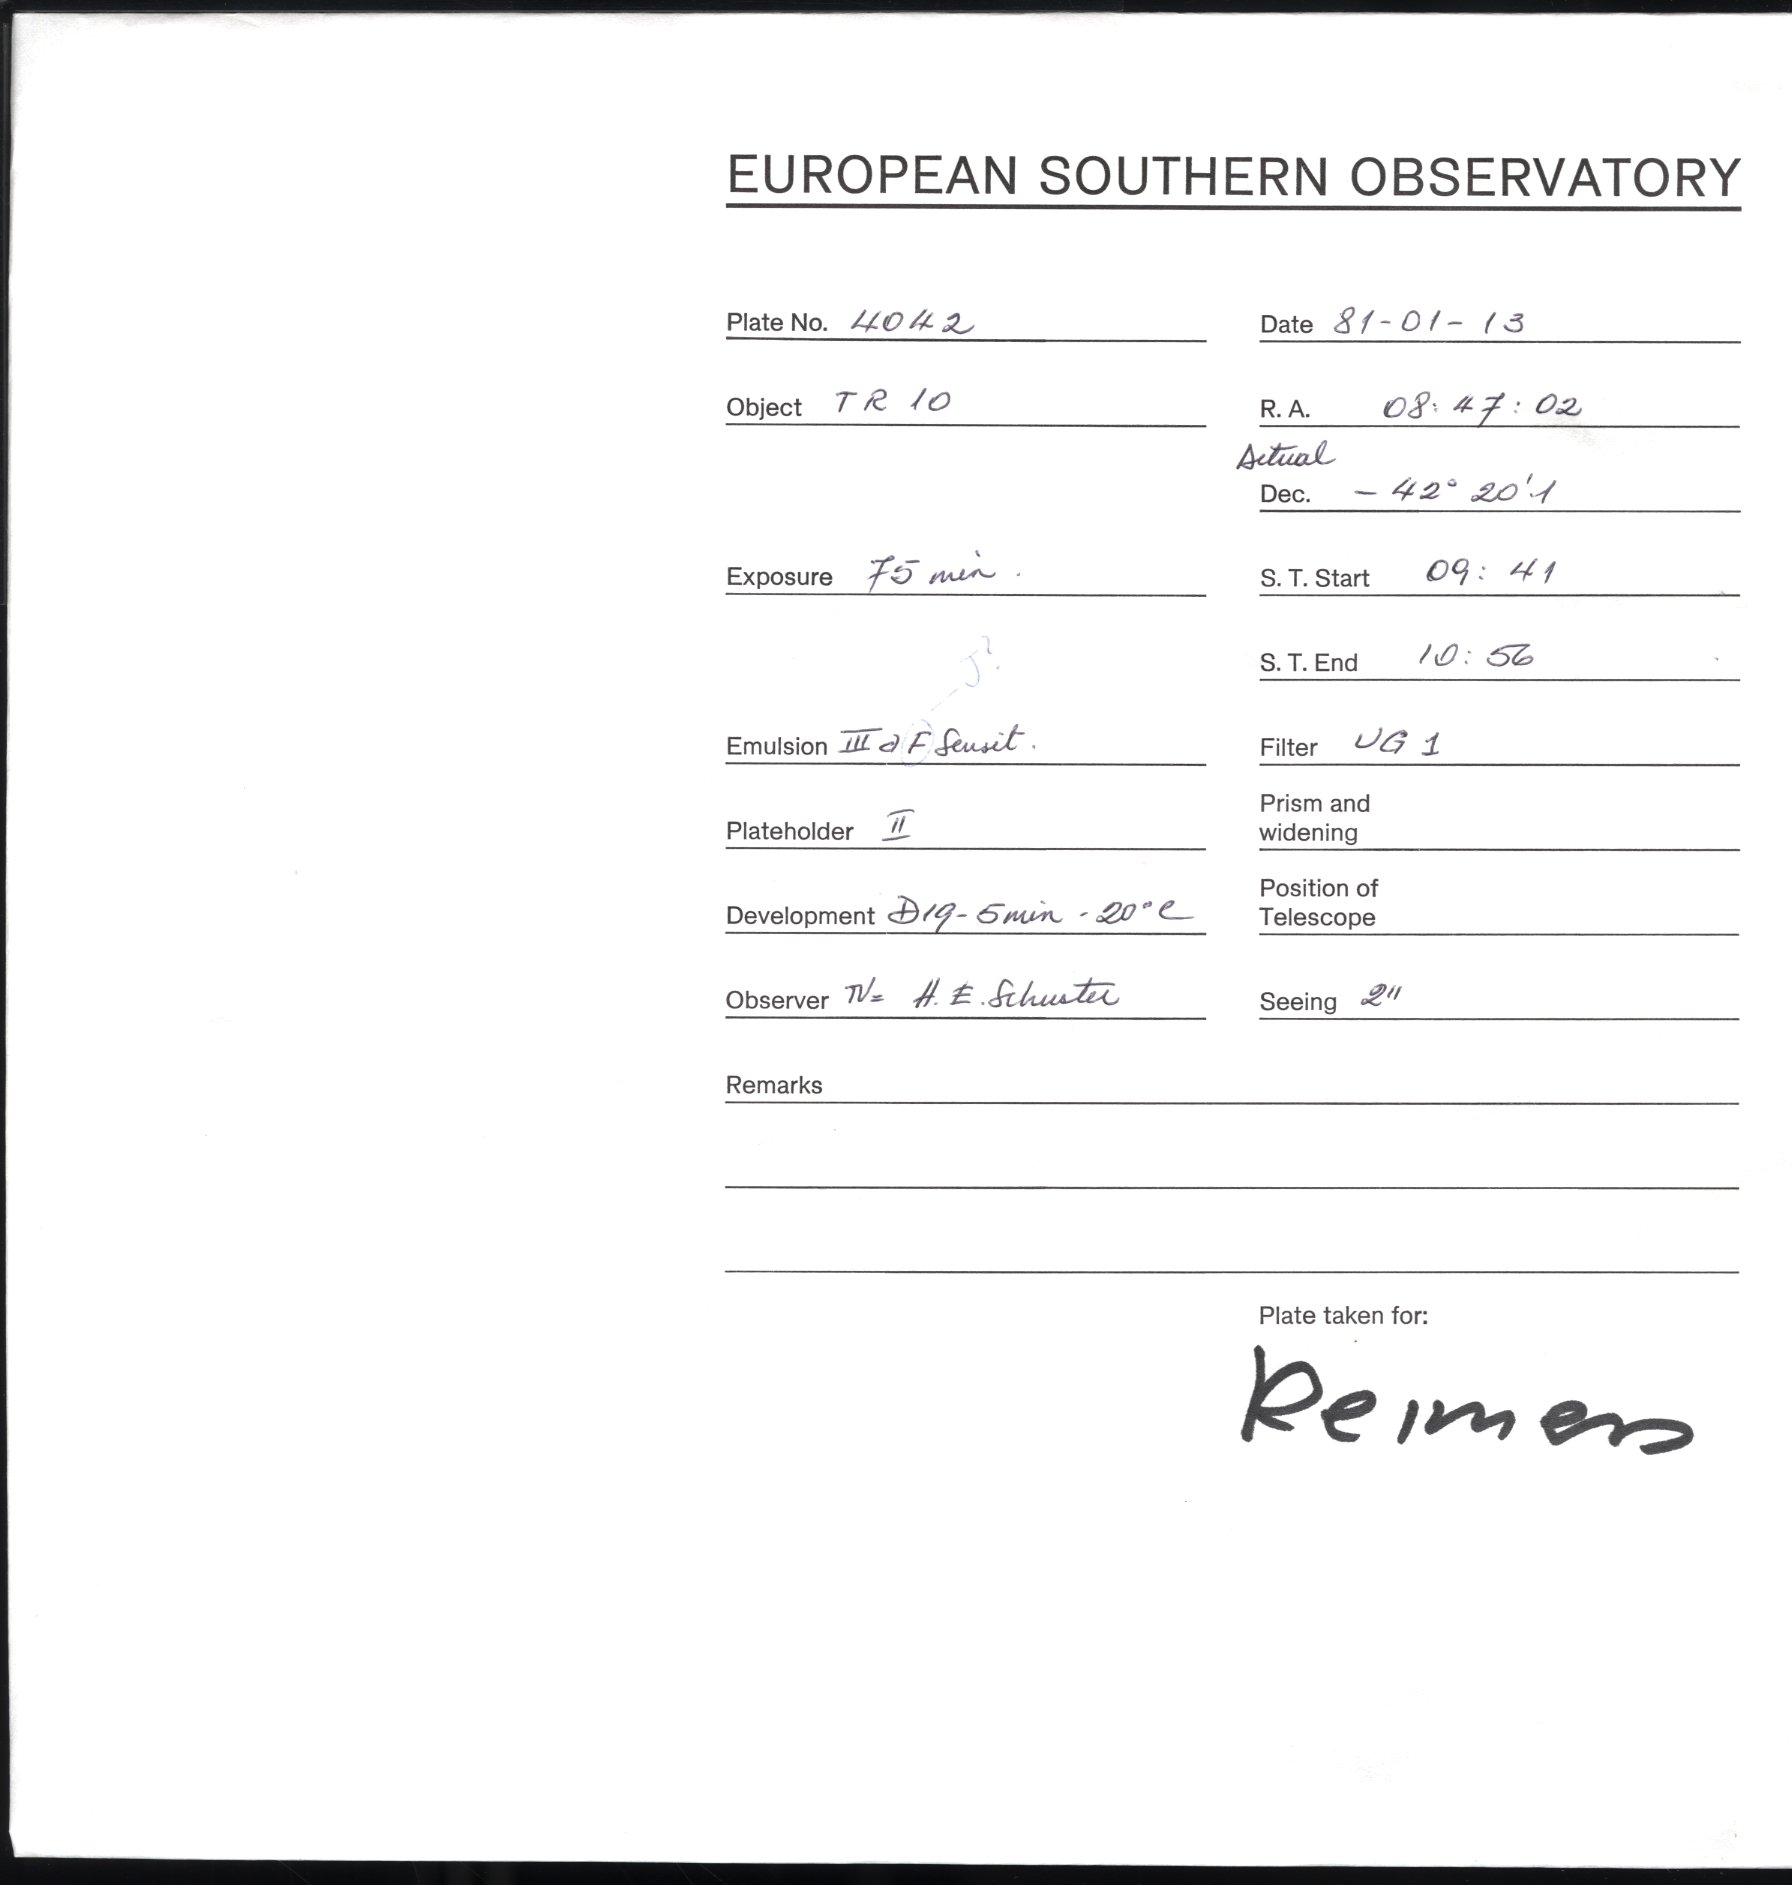 EUROPEAN SOUTHERN OBSERVATORY
Plate No. 4042
Date 81-01-13
Object TR 10
R. A. 08: 47: 02
Actual
Dec. - 42° 20'.1
Exposure 75 min.
S. T. Start 09: 41
S. T. End 10: 56
J?
Emulsion III a F Sensit.
Filter UG 1
Plateholder II
Prism and
widening
Development D19- 5min - 20°C
Position of
Telescope
Observer H. E. Schuster
Seeing 2"
Remarks
Plate taken for:
Reimers